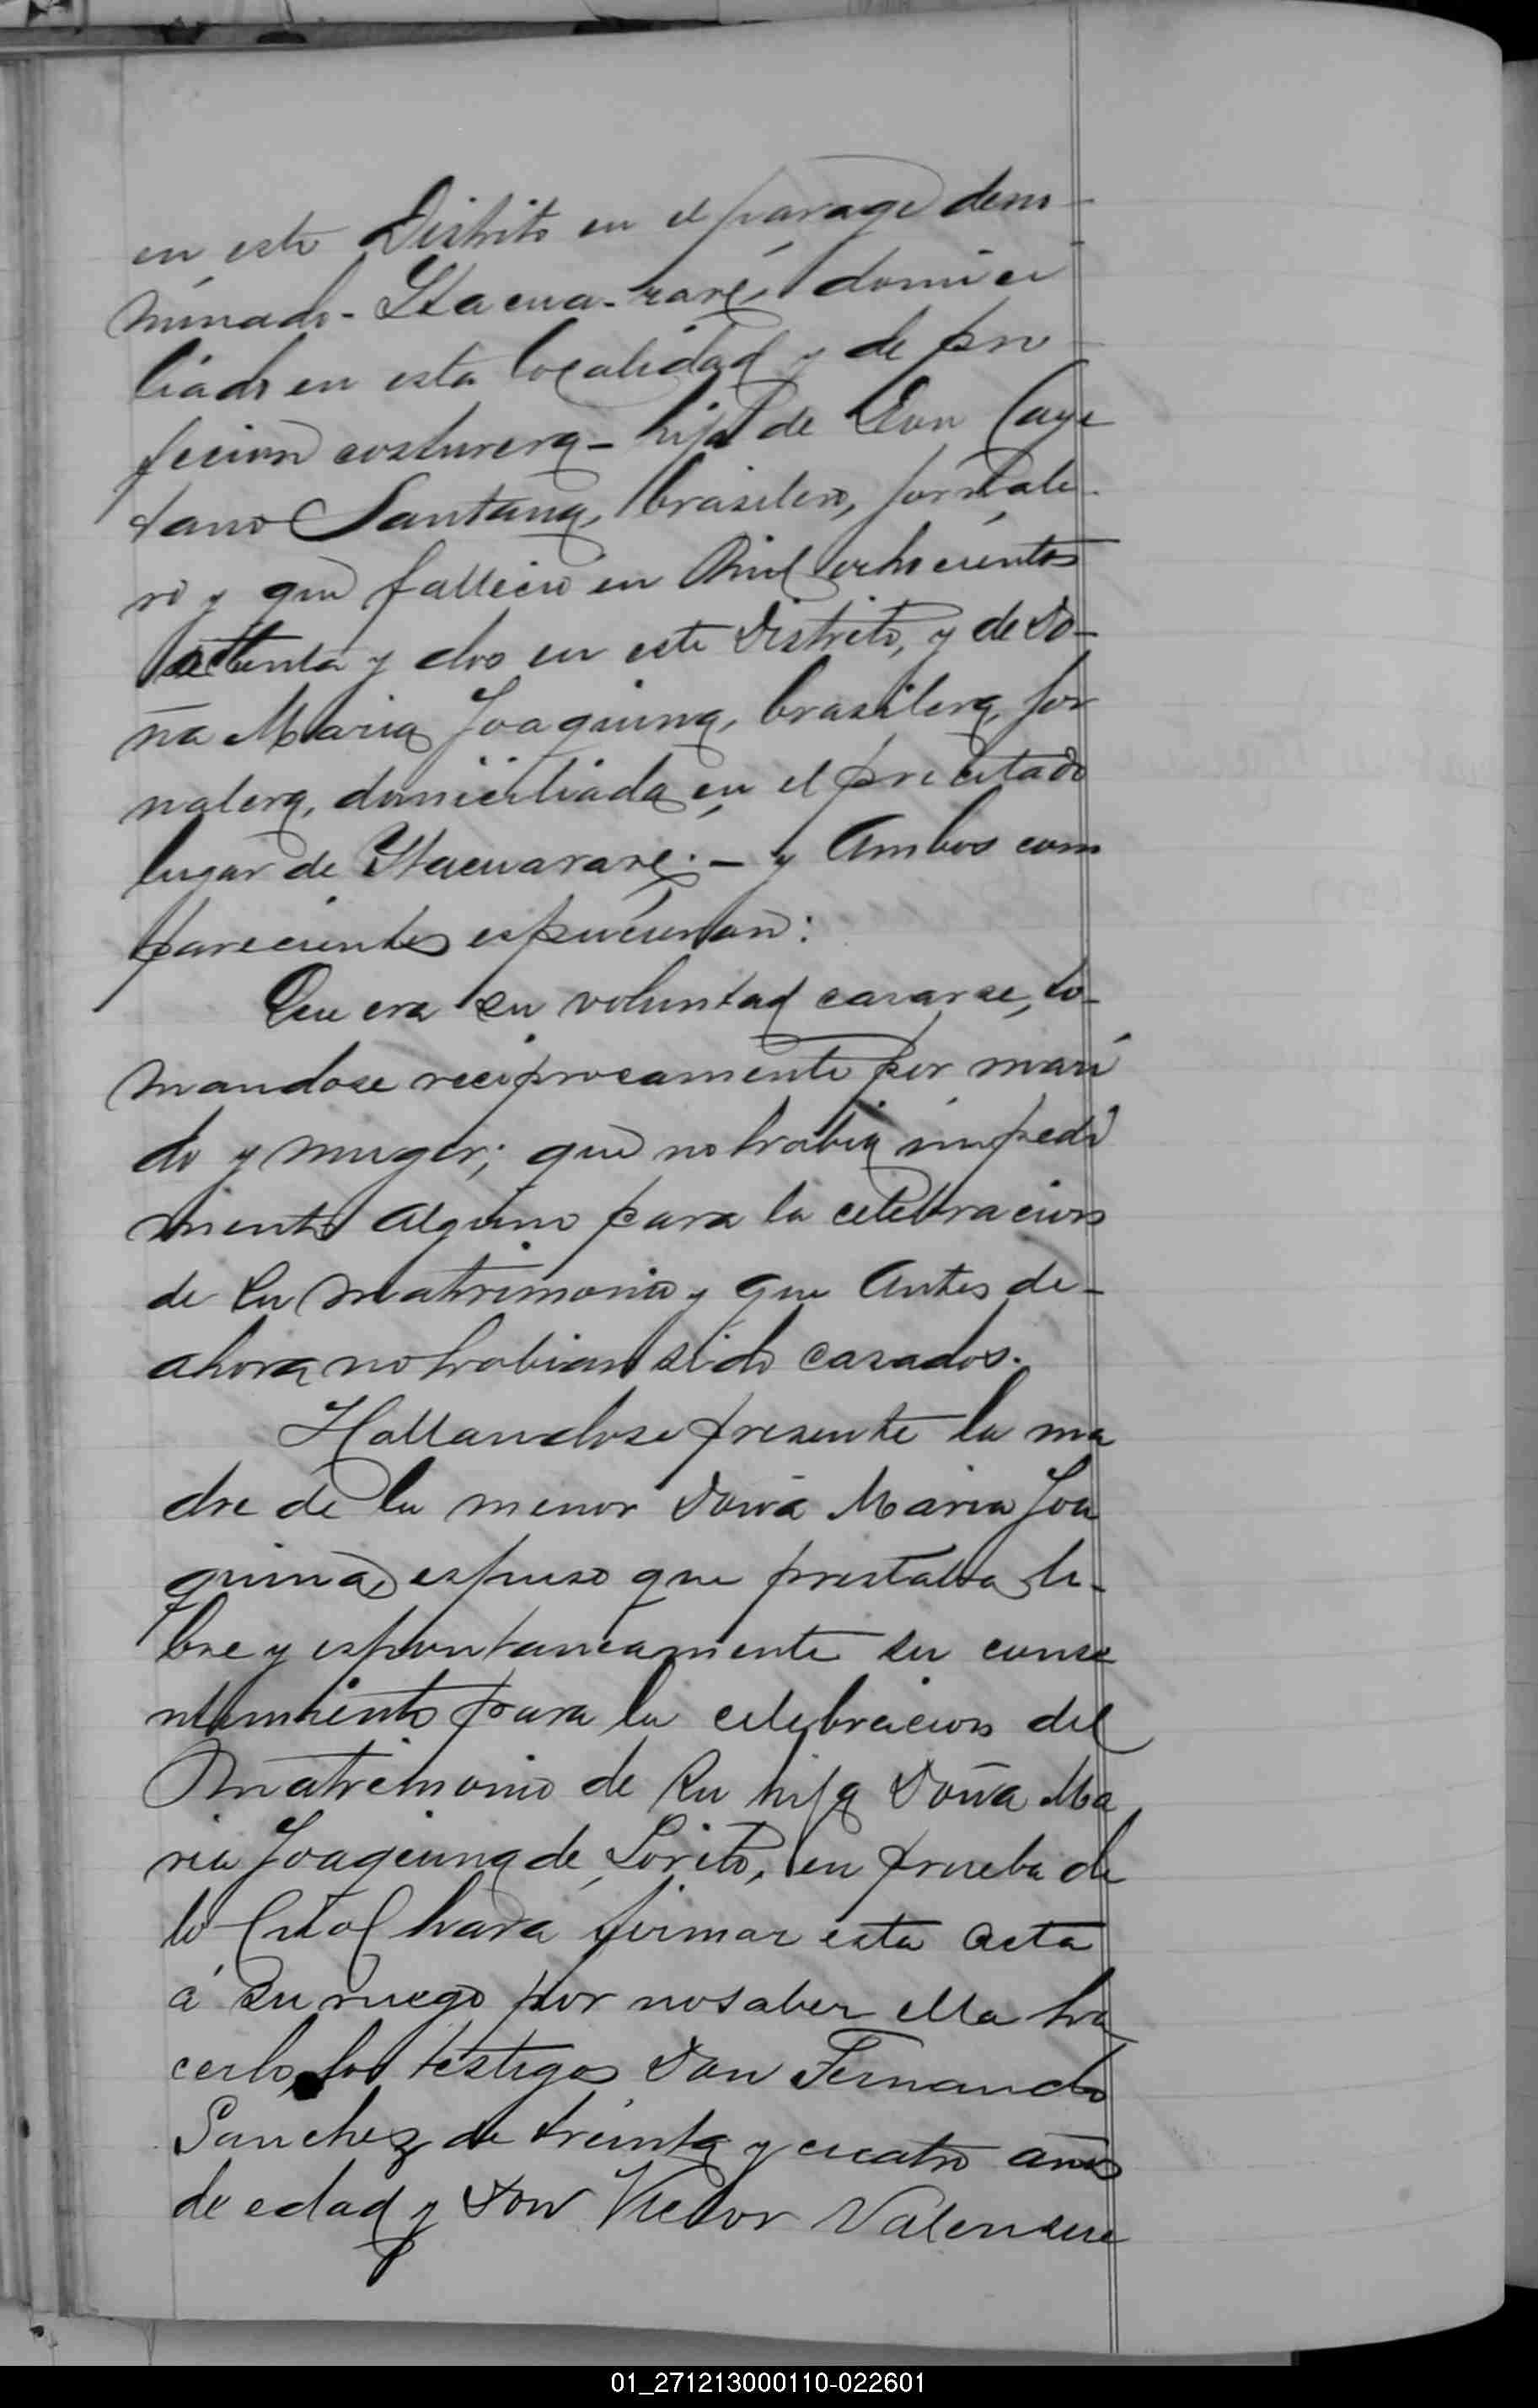 en este Distrito en el parage deno-
minado - Itacua-raré, domici
liada en esta localidad y de pro
fecion costurera - hija de Don Caye
tano Santana, brasilero, jornale-
ro y que fallecio en Mil ochocientos
setenta y dos en este Distrito, y de Do-
ña Maria Joaquina, brasilera, jor
nalera, domiciliada en el precitado
lugar de Itacuararé. - y Ambos com
parecientes espucieron:
Que era su voluntad casarse, to-
mandose reciprocamente por mari
do y muger; que no habia impedi
mento alguno para la celebracion
de su matrimonio y que Antes de-
ahora no habian sido casados.
Hallandose presente la ma
dre de la menor Doña Maria Joa
quina, espuso que prestaba li-
bre y espontaneamente su conse
ntimiento para la celebracion del
Matrimonio de su hija Doña Ma
ria Joaquina de Lorito, en prueba de
lo Cual hará firmar esta acta
á su ruego por no saber ella ha
cerlo, los testigos Don Fernando
Sanchez de treinta y cuatro años
de edad y Don Victor Valensue
01_271213000110-022601